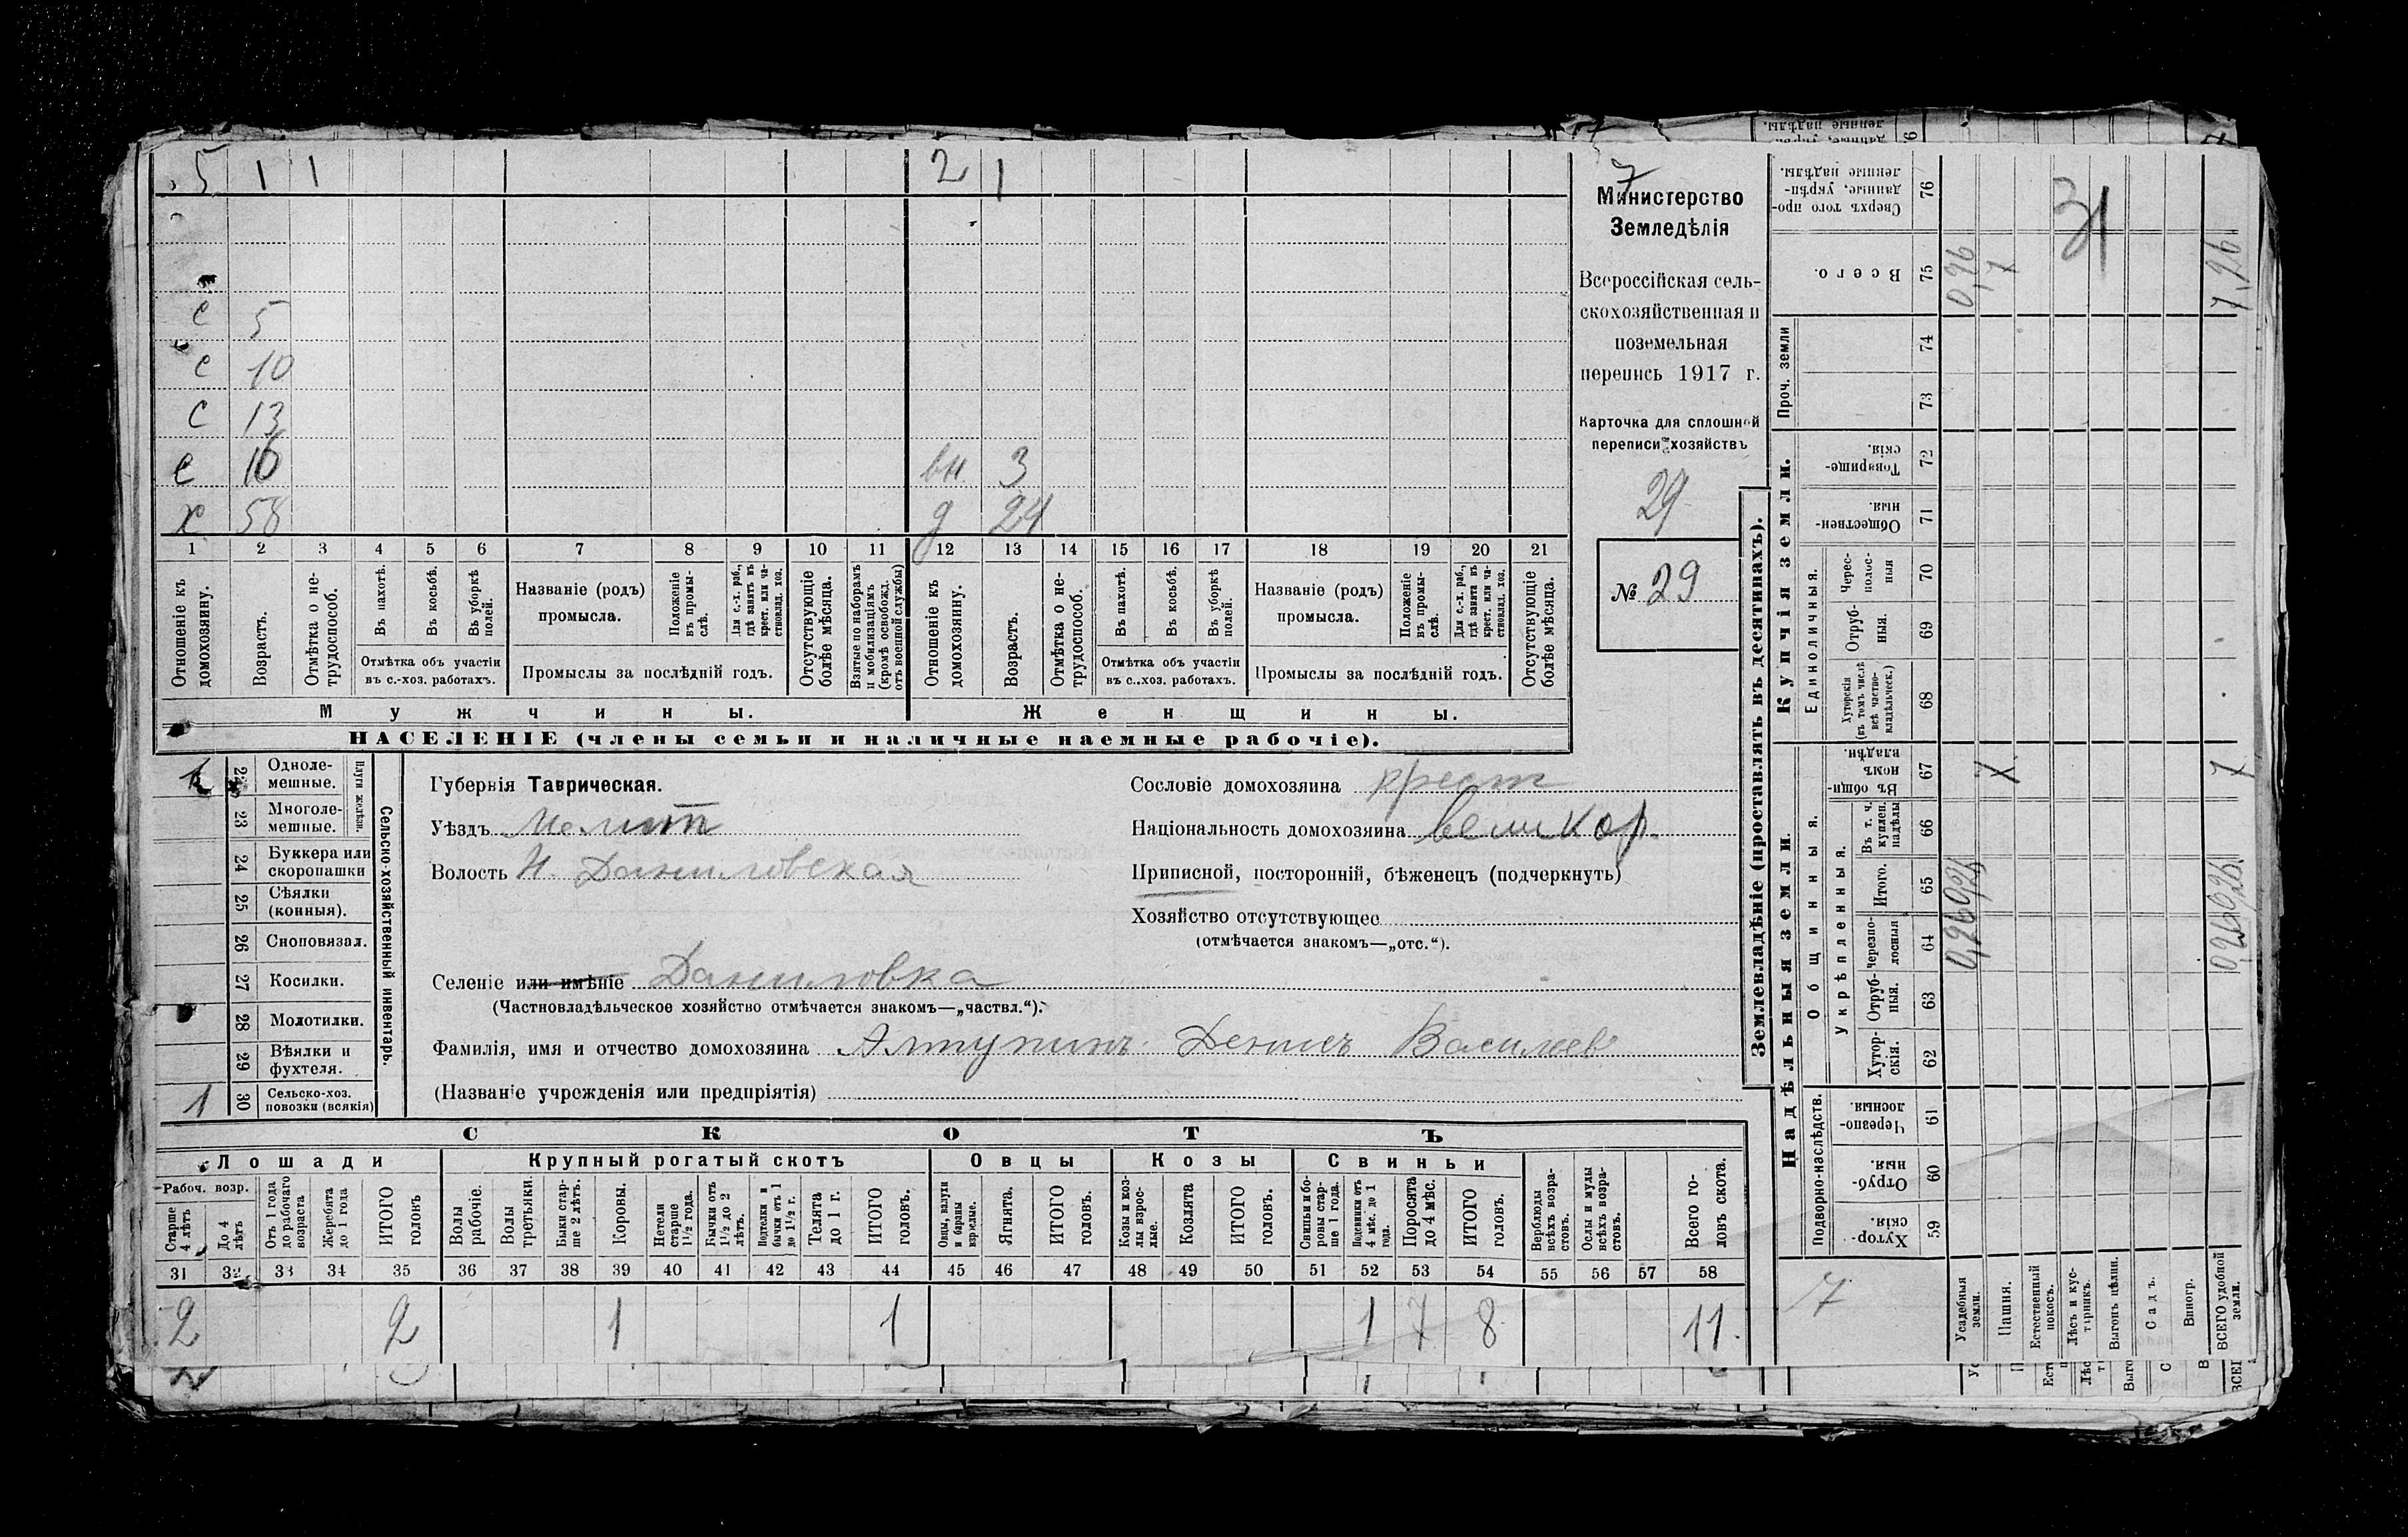 5 1 1 2 1 7
с 5
с 10
с 13
с 16 вн 3
х 58 д 24
1 2 3 4 5 6 7 8 9 10 11 12 13 14 15 16 17 18 19 20 21
Отношеніе къ домохозяину.
Возрастъ.
Отмѣтка о не-
трудоспособ.
Въ пахотѣ.
Въ косьбѣ.
Въ уборкѣ полей.
Отмѣтка объ участіи
въ с.-хоз. работахъ.
Названіе (родъ)
промысла.
Положеніе
въ промы-
слѣ.
Для с.-х. раб.,
гдѣ занятъ въ
крест. или ча-
стновлад. хоз.
Промыслы за послѣдній годъ.
Отсутствующіе
болѣе мѣсяца.
Взятые по наборамъ
и мобилизаціямъ
(кромѣ освобожд.
отъ военной службы)
Отношеніе къ
домохозяину.
Возрастъ.
Отмѣтка о не-
трудоспособ.
Въ пахотѣ.
Въ косьбѣ.
Въ уборкѣ
полей.
Отмѣтка объ участіи
въ с.-хоз. работахъ.
Названіе (родъ)
промысла.
Положеніе
въ промы-
слѣ.
Для с.-х. раб.,
гдѣ занята въ
крест. или ча-
стновлад. хоз.
Промыслы за послѣдній годъ.
Отсутствующіе
болѣе мѣсяца.
Мужчины.
Женщины.
НАСЕЛЕНІЕ (члены семьи и наличные наемные рабочіе).
Министерство
Земледѣлія
Всероссійская сель-
скохозяйственная и
поземельная
перепись 1917 г.
Карточка для сплошной
переписи хозяйствъ
29
№ 29
Сельско-хозяйственный инвентарь.
Плуги желѣзн.
1 22 Одноле-
мешные.
23 Многоле-
мешные.
24 Буккера или
скоропашки
25 Сѣялки
(конныя).
26 Сноповязал.
27 Косилки.
28 Молотилки.
29 Вѣялки и
фухтеля.
1 30 Сельско-хоз.
повозки (всякія)
Губернія Таврическая.
Уѣздъ Мелит
Волость Н. Даниловская
Селеніе или имѣніе Даниловка
(Частновладѣльческое хозяйство отмѣчается знакомъ—„частвл.“).
Фамилія, имя и отчество домохозяина Алтупинъ Денисъ Васильев
(Названіе учрежденія или предпріятія)
Сословіе домохозяина крест
Національность домохозяина великор.
Приписной, посторонній, бѣженецъ (подчеркнуть)
Хозяйство отсутствующее
(отмѣчается знакомъ—„отс.“).
СКОТЪ
Лошади
Крупный рогатый скотъ
Овцы
Козы
Свиньи
Рабоч. возр.
Старше
4 лѣтъ
До 4
лѣтъ
Отъ 1 года
до рабочаго
возраста
Жеребята
до 1 года
ИТОГО
головъ
Волы
рабочіе.
Волы
третьяки.
Быки стар-
ше 2 лѣтъ.
Коровы.
Нетели
старше
1½ года.
Бычки отъ
1½ до 2
лѣтъ.
Подтелки и
бычки отъ 1
до 1½ г.
Телята
до 1 г.
ИТОГО
головъ.
Овцы, валухи
и бараны
взрослые.
Ягнята.
ИТОГО
головъ.
Козы и коз-
лы взрос-
лые.
Козлята
ИТОГО
головъ.
Свиньи и бо-
ровы стар-
ше 1 года.
Подсвинки отъ
4 мѣс. до 1
года.
Поросята
до 4 мѣс.
ИТОГО
головъ.
Верблюды
всѣхъ возра-
стовъ.
Ослы и мулы
всѣхъ возра-
стовъ.
Всего го-
ловъ скота.
31 32 33 34 35 36 37 38 39 40 41 42 43 44 45 46 47 48 49 50 51 52 53 54 55 56 57 58
2 2 1 1 1 7 8 11.
Землевладѣніе (проставлять въ десятинахъ).
Надѣльныя земли.
Купчія земли.
Проч. земли
Подворно-наслѣдств.
Общинныя.
Укрѣпленныя.
Единоличныя.
Хутор-
скія. 59
Отруб-
ныя. 60
Черезпо-
лосныя. 61
Хутор-
скія. 62
Отруб-
ныя. 63
Черезпо-
лосныя 64
Итого. 65
Въ т. ч.
куплен.
надѣлы 66
Въ общин-
номъ
владѣн. 67
Хуторскія
(въ томъ числѣ
всѣ частно-
владѣльческ.) 68
Отруб-
ныя. 69
Черес-
полос-
ныя 70
Обществен-
ныя. 71
Товарище-
скія. 72
73
74
Всего. 75
Сверхъ того про-
данные, укрѣп-
ленные надѣлы. 76
7
31
Усадебныя
земли. 0,96 0,96 0,96
Пашня. 7 7
Естественный
покосъ.
Лѣсъ и кус-
тарникъ.
Выгонъ цѣлин.
Садъ.
Виногр.
ВСЕГО удобной
земли. 7 7,96